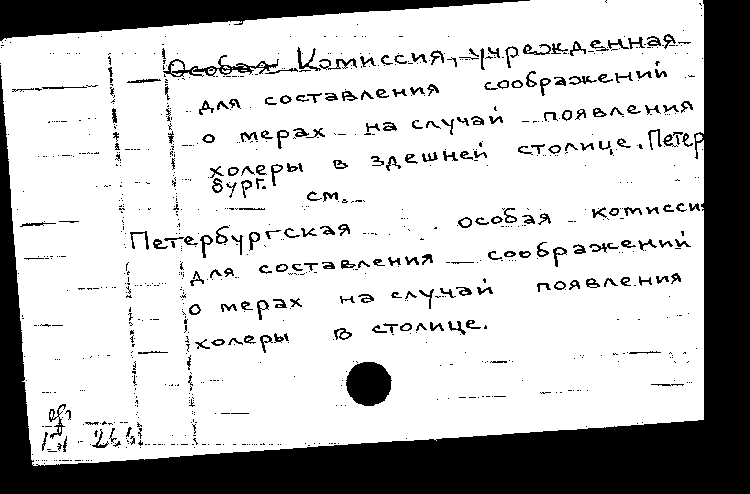 Особая Комиссия, учрежденная
для составления соображений
о мерах на случай появления
холеры в здешней столице. Петер
бург.
см.
Петербургская особая комиссия
для составления соображений
о мерах на случай появления
холеры в столице.